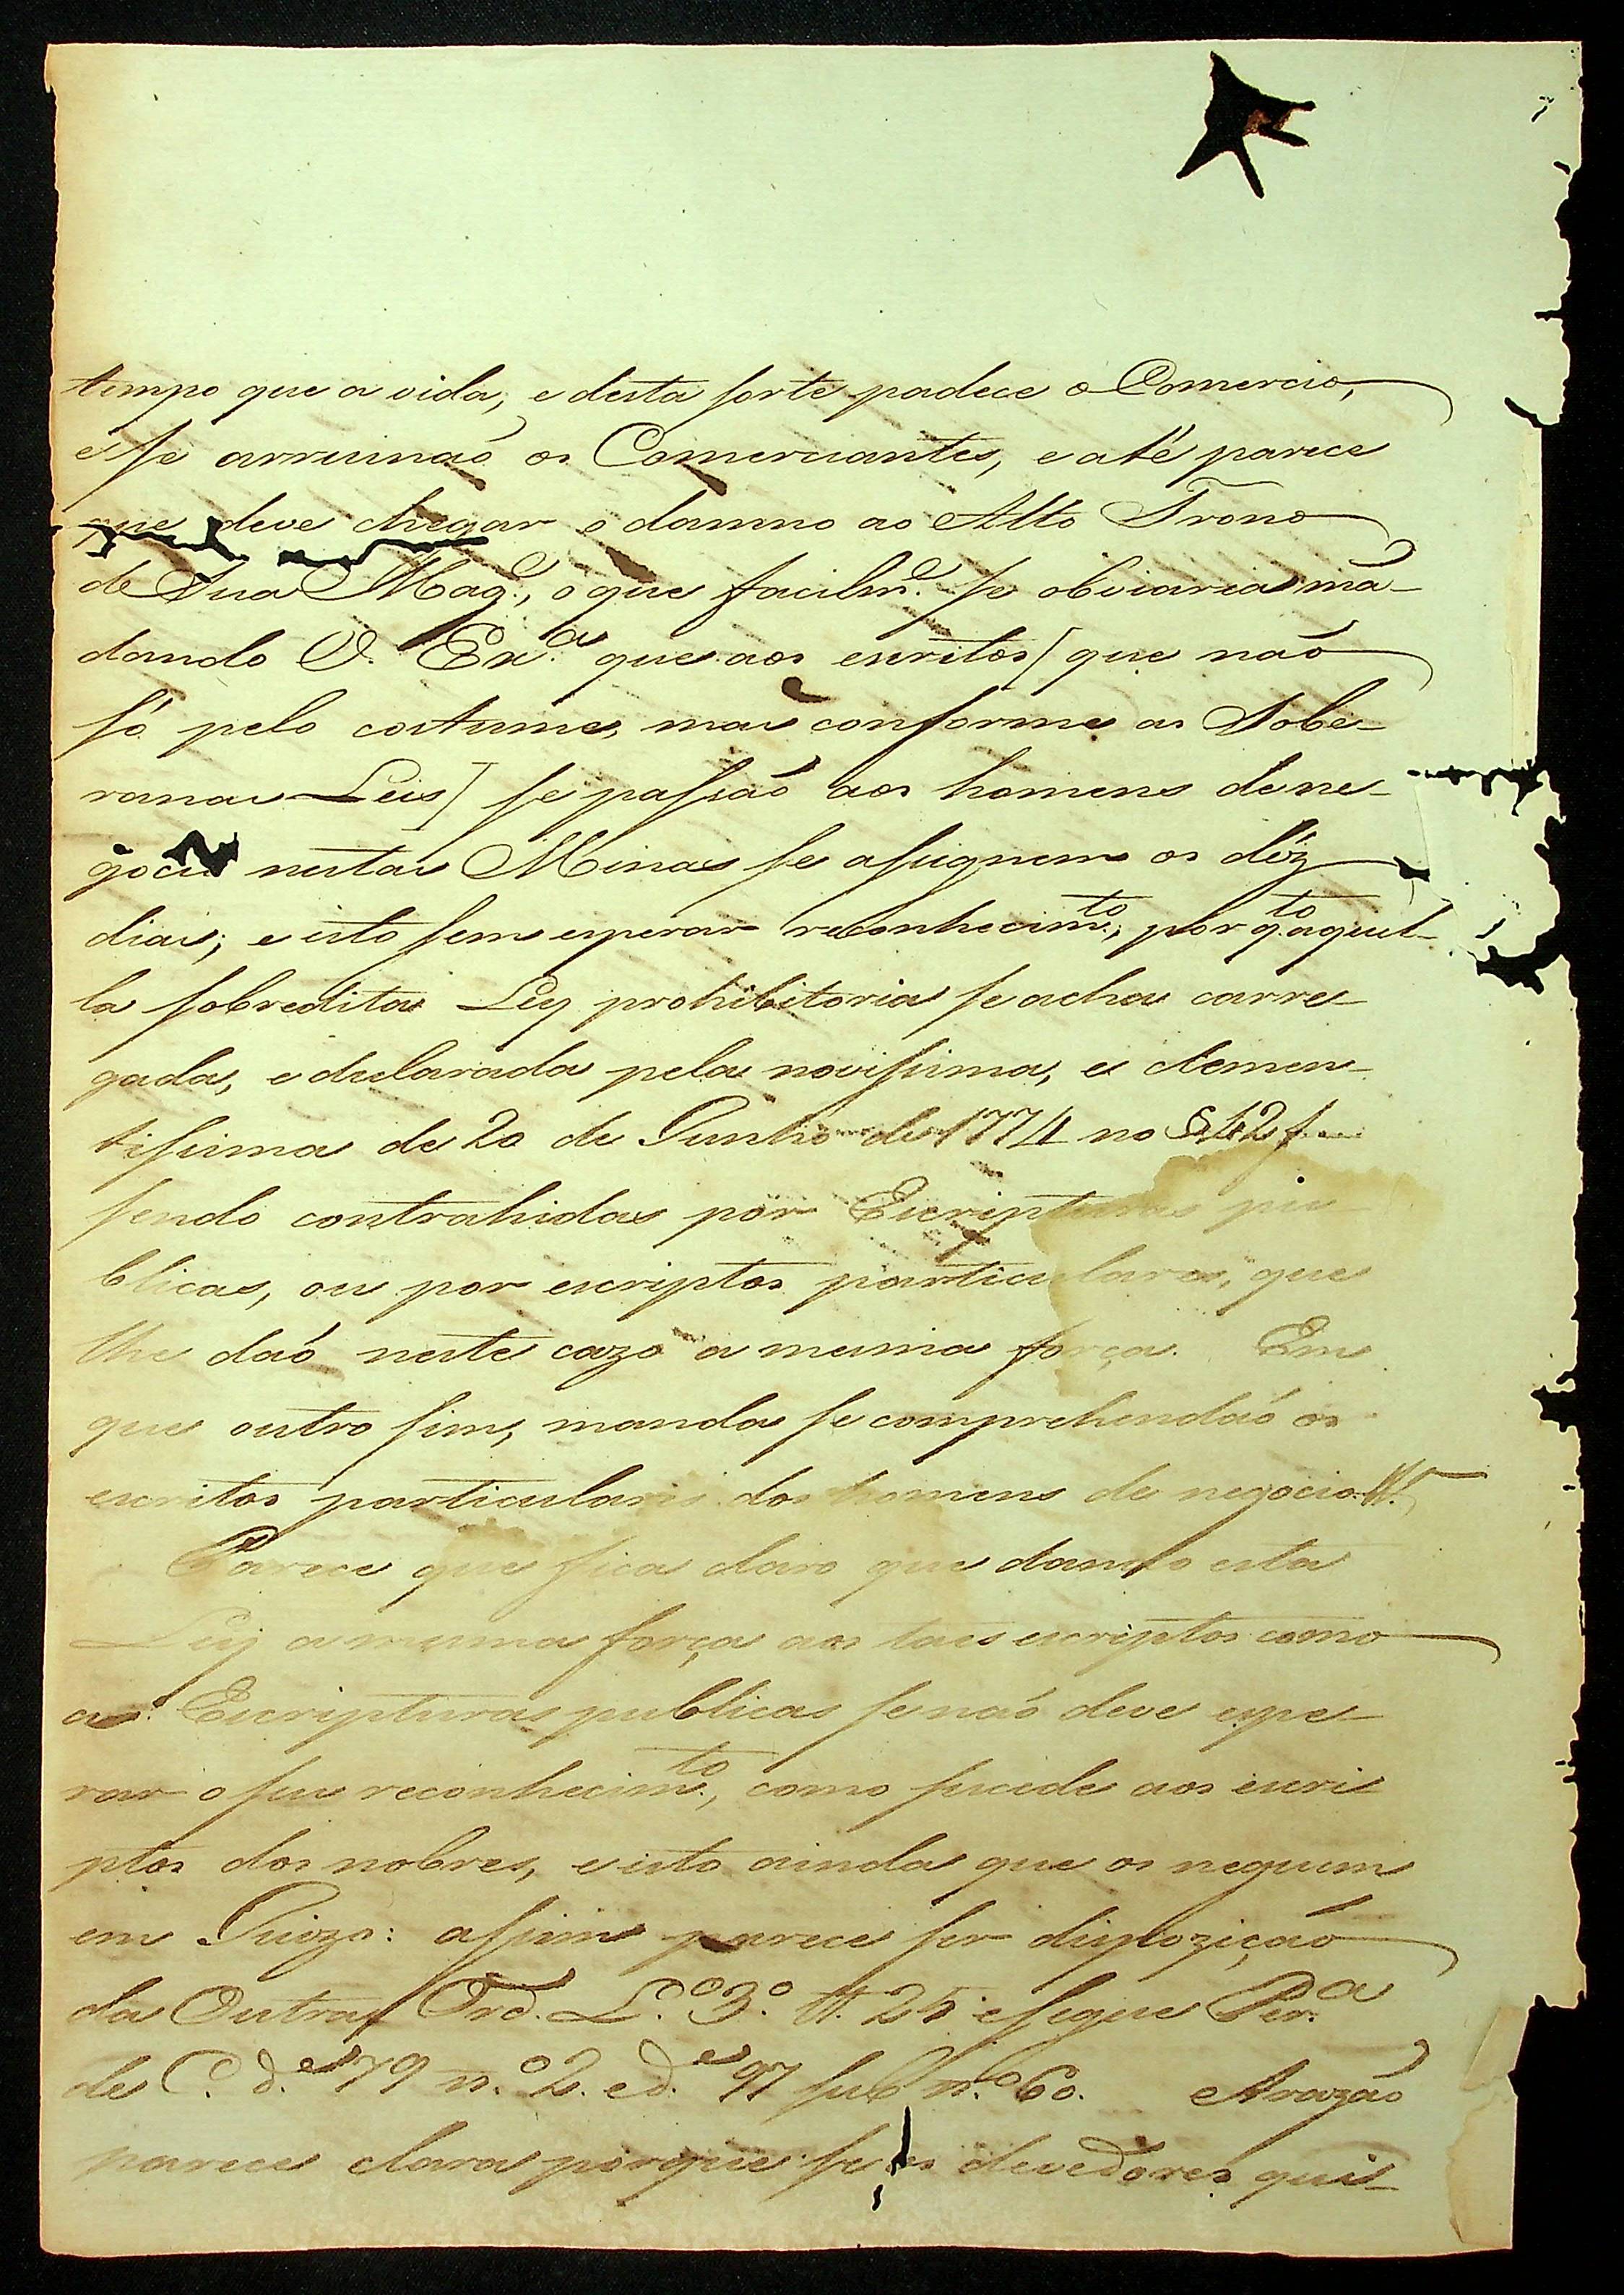 7
tempo que a vida, e desta sorte padece o Comercio,
e se arruinaõ os Comerciantes, e até parece
que deve chegar o damno ao Alto Trono
de Sua Mag.e, o que facilm.e se obviaria mã-
dando V. Ex.a que aos escritos [que naõ
só pelo costume, mas conforme as Sobe-
ranas Leis] se passaõ aos homens de ne-
gocio nestas Minas se assignem os déz
dias; e isto sem esperar reconhecim.to, por q.to aquel-
la sobredita Ley prohibitoria se acha carre-
gada, e declarada pela novissima, e clemen-
tissima de 20 de Junho de 1774 no § 42
sendo contrahidas por Escripturas pu
blicas, ou por escriptos particulares, que
lhe daõ neste cazo a mesma força. Em
que outro sim, manda se comprehendaõ os
escritos particulares dos homens de negocio
Parece que fica claro que dando esta
Ley a mesma força aos taes escriptos como
as Escripturas publicas se naõ deve espe-
rar o seu reconhecim.to, como sucede aos escri
ptos dos nobres, e isto ainda que os neguem
em Juizo: assim parece ser dispoziçaõ
da Outra Ord. L.o 3.o tt. 25 e segue Per.a
de C. d.e 79 n.o 2. e d.e 97 sub n.o 60. A razaõ
parece clara porque se os devedores qui-